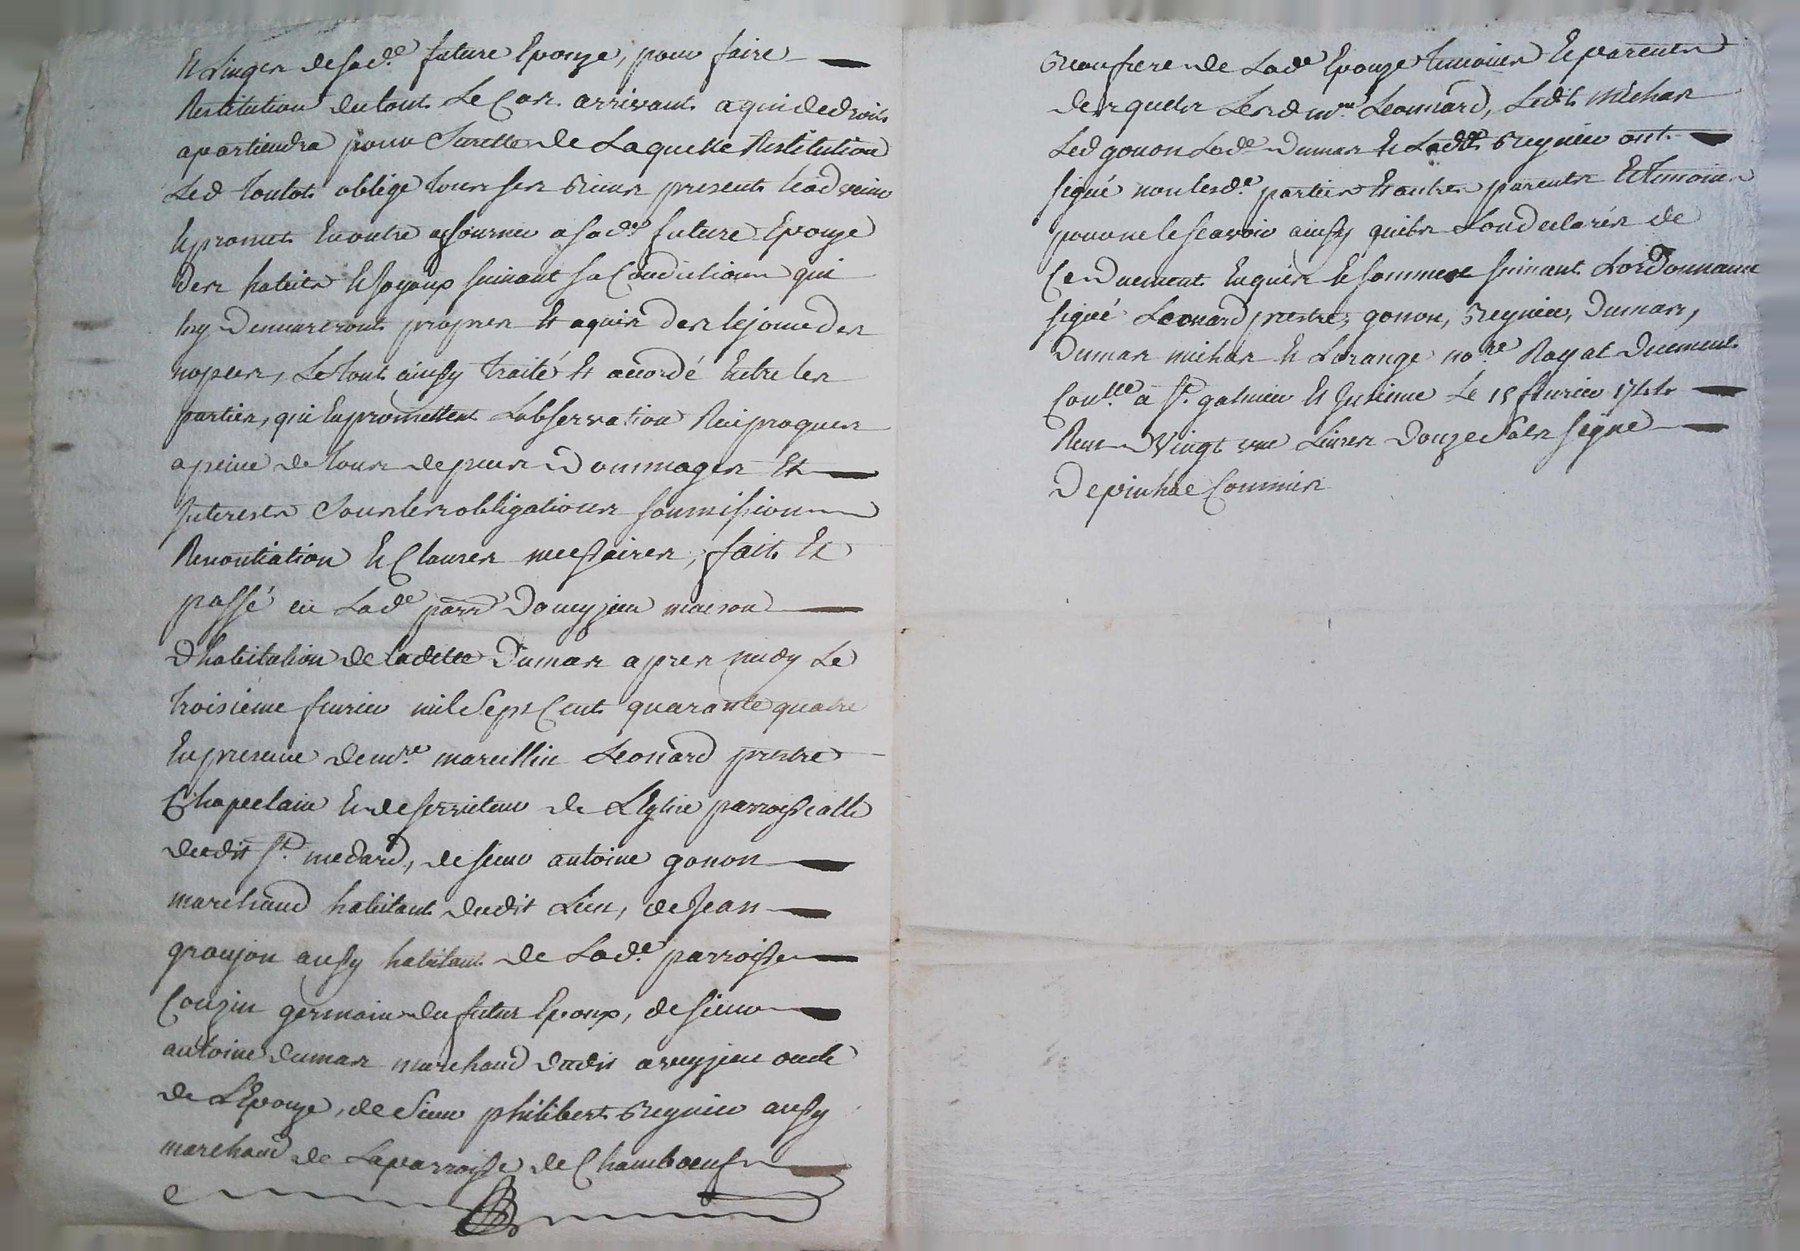 et linges de sad.e future Epouze, pour faire
Restitution du tout Le Cas arrivant a qui de droit
apartiendra pour Surette de Laquelle Restitution
Led toutot oblige tous ses Biens presents et advenir
et promet En outre a sad.e future Epouze
des habits et Joyaux suivant sa Condiction qui
luy Demeureront propres et aquis des le jour des
nopces, Le tout ainsy traité et accordé Entre les
parties, qui En promettent L'observation Reciproques
a peine de tous depens Dommages Et
Interests Sous les obligations soumissions
Renontiation et Clauses necessaires, fait Et
passé en Lad.e parr. D'aveyzieu maison
D'habitation de ladette Dumas apres midy Le
troisieme fevrier mil Sept Cent quarante quatre
En presence de m.re marcellin Leonard prestre
Chapelain et deserviteur de L'Eglise parroissialle
dudit St medard, de sieur antoine gonon
marchand habitant dudit Lieu, de Jean
grousson aussy habitant de Lad.e parroisse
Couzin germain du futur Epoux, de sieur
antoine dumas marchand dudit aveyzieu oncle
de L'Epouze, de Sieur philibert Breynieu aussy
marchand de La parroisse de Chambœuf
Beaufrere de Lad.e Epouze temoins et parents
desquels Led m.re Leonnard, Ledit michas
Led gonon Led. dumas et Led. Breynieu ont
signé non lesd. parties et autres parents Et temoins
pour ne le scavoir ainsy quils L'ont declarés de
Ce duement Enquis et sommés suivant Lordonnance
signé Leonard prestre, gonon, Breynieu, Dumas,
Dumas michas et Lorange no.re Royal duement
Con.llé a St galmier et Insinué Le 15 fevrier 1744
Reçu Vingt une Livres Douze Sols signé
Depinhac Commis